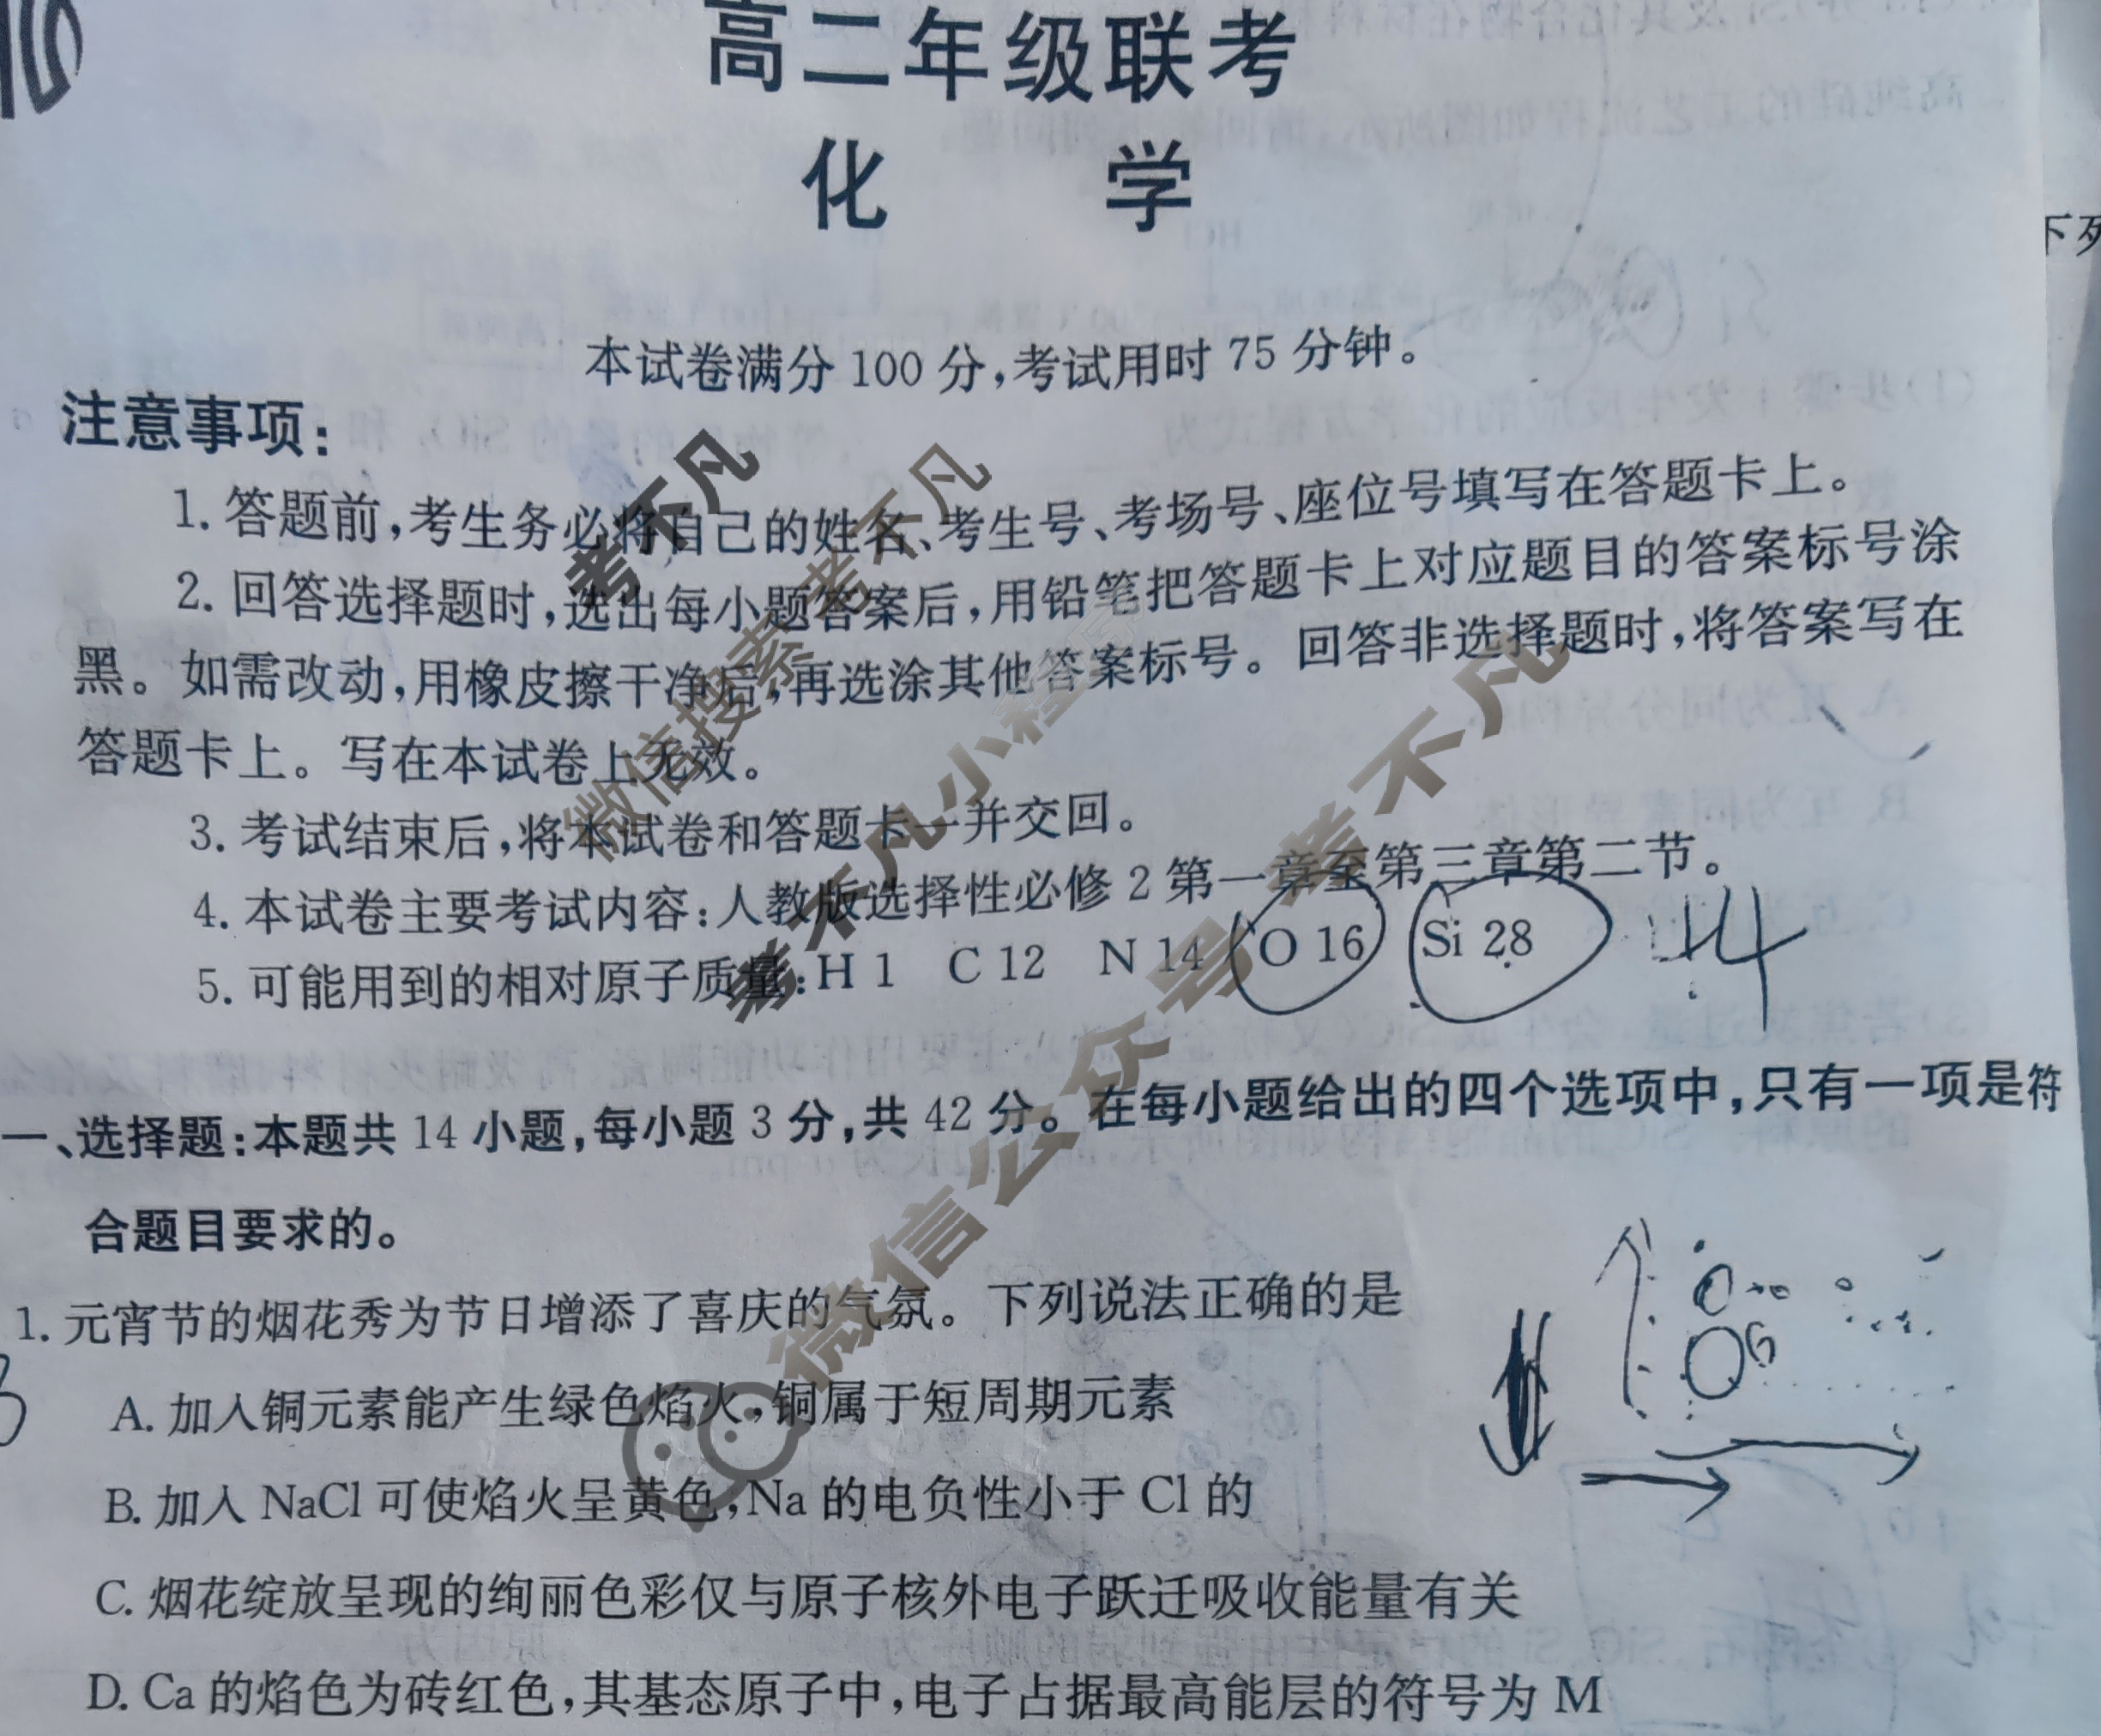 高二年级联考
化 学
下列
本试卷满分 100 分,考试用时 75 分钟。
注意事项:
1. 答题前,考生务必将自己的姓名、考生号、考场号、座位号填写在答题卡上。
2. 回答选择题时,选出每小题答案后,用铅笔把答题卡上对应题目的答案标号涂
黑。如需改动,用橡皮擦干净后,再选涂其他答案标号。回答非选择题时,将答案写在
答题卡上。写在本试卷上无效。
3. 考试结束后,将本试卷和答题卡一并交回。
4. 本试卷主要考试内容:人教版选择性必修 2 第一章至第三章第二节。
5. 可能用到的相对原子质量:H 1 C 12 N 14 O 16 Si 28
14
一、选择题:本题共 14 小题,每小题 3 分,共 42 分。在每小题给出的四个选项中,只有一项是符
合题目要求的。
1. 元宵节的烟花秀为节日增添了喜庆的气氛。下列说法正确的是
A. 加入铜元素能产生绿色焰火,铜属于短周期元素
B. 加入 NaCl 可使焰火呈黄色,Na 的电负性小于 Cl 的
C. 烟花绽放呈现的绚丽色彩仅与原子核外电子跃迁吸收能量有关
D. Ca 的焰色为砖红色,其基态原子中,电子占据最高能层的符号为 M
考不凡
微信搜索考不凡
考不凡小程序
微信公众号 考不凡